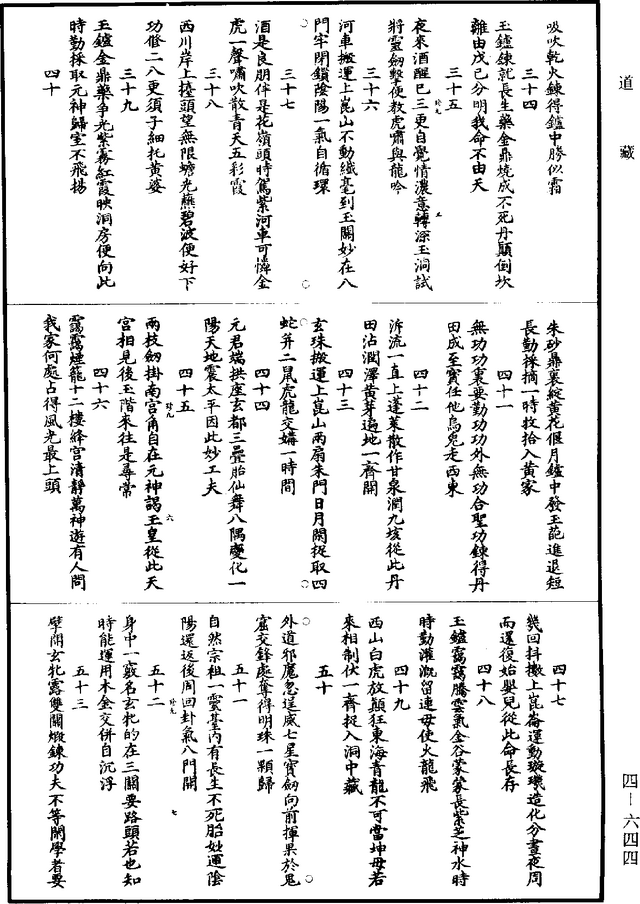 道藏
吸吹乾火鍊得鑪中勝似霜
三十四
玉鑪鍊就長生藥金鼎燒成不死丹顛倒坎
離由戊己分明我命不由天
三十五
夜來酒醒已三更自覺情濃意轉深玉洞試
將靈劒擊便教虎嘯與龍吟
三十六
河車搬運上崑山不動纖毫到玉關妙在八
門牢閉鎖陰陽一氣自循環
三十七
酒是良朋伴是花嶺頭時駕紫河車可憐金
虎一聲嘯吹散青天五彩霞
三十八
西川岸上擡頭望無限蟾光蘸碧波便好下
功修二八更須子細托黃婆
三十九
玉鑪金鼎藥爭光紫霧紅霞映洞房便向此
時勤採取元神歸室不飛揚
四十
朱砂鼎裏綻黃花偃月鑪中發玉葩進退短
長勤採摘一時收拾入黃家
四十一
無功功裏要勤功功外無功合聖功鍊得丹
田成至寶任他烏兔走西東
四十二
泝流一直上蓬萊散作甘泉潤九垓從此丹
田沾潤澤黃芽遍地一齊開
四十三
玄珠搬運上崑山兩扇朱門日月關捉取四
蛇并二鼠虎龍交媾一時間
四十四
元君端拱座玄都三疊胎仙舞八隅變化一
陽天地震太平因此妙工夫
四十五
兩枝劒掛南宮角自在元神謁玉皇從此天
宮相見後玉階來往是尋常
四十六
靄靄煙籠十二樓絳宮清靜萬神遊有人問
我家何處占得風光最上頭
四十七
幾回抖擻上崑崙運動璇璣造化分晝夜周
而還復始嬰兒從此命長存
四十八
玉鑪靄靄騰雲氣金谷蒙蒙長紫芝神水時
時勤灌溉留連毋使火龍飛
四十九
西山白虎放顛狂東海青龍不可當坤母若
來相制伏一齊捉入洞中藏
五十
外道邪魔忽逞威七星寶劒向前揮果於鬼
窟交鋒處奪得明珠一顆歸
五十一
自然宗祖一靈臺內有長生不死胎妙運陰
陽還返後周回卦氣八門開
五十二
身中一竅名玄牝的在三關要路頭若也知
時能運用木金交併自沉浮
五十三
擘開玄牝露雙關煅鍊功夫不等閑學者要
四-六四四